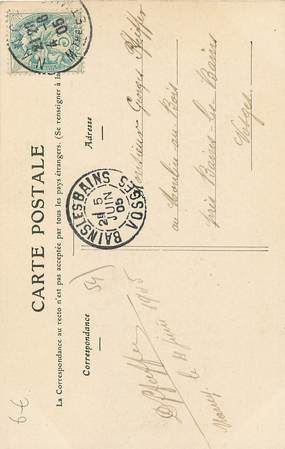 CARTE POSTALE
La Correspondance au recto n'est pas acceptée par tous les pays étrangers. (Se renseigner à la
Correspondance
Adresse
54
Pfeiffer
Nancy le 4 juin 1905
Monsieur Georges Pfeiffer
au Moulin au Bois
près Bains-les-Bains
Vosges
BAINS-LES-BAINS
VOSGES
5
JUIN
05
6 €